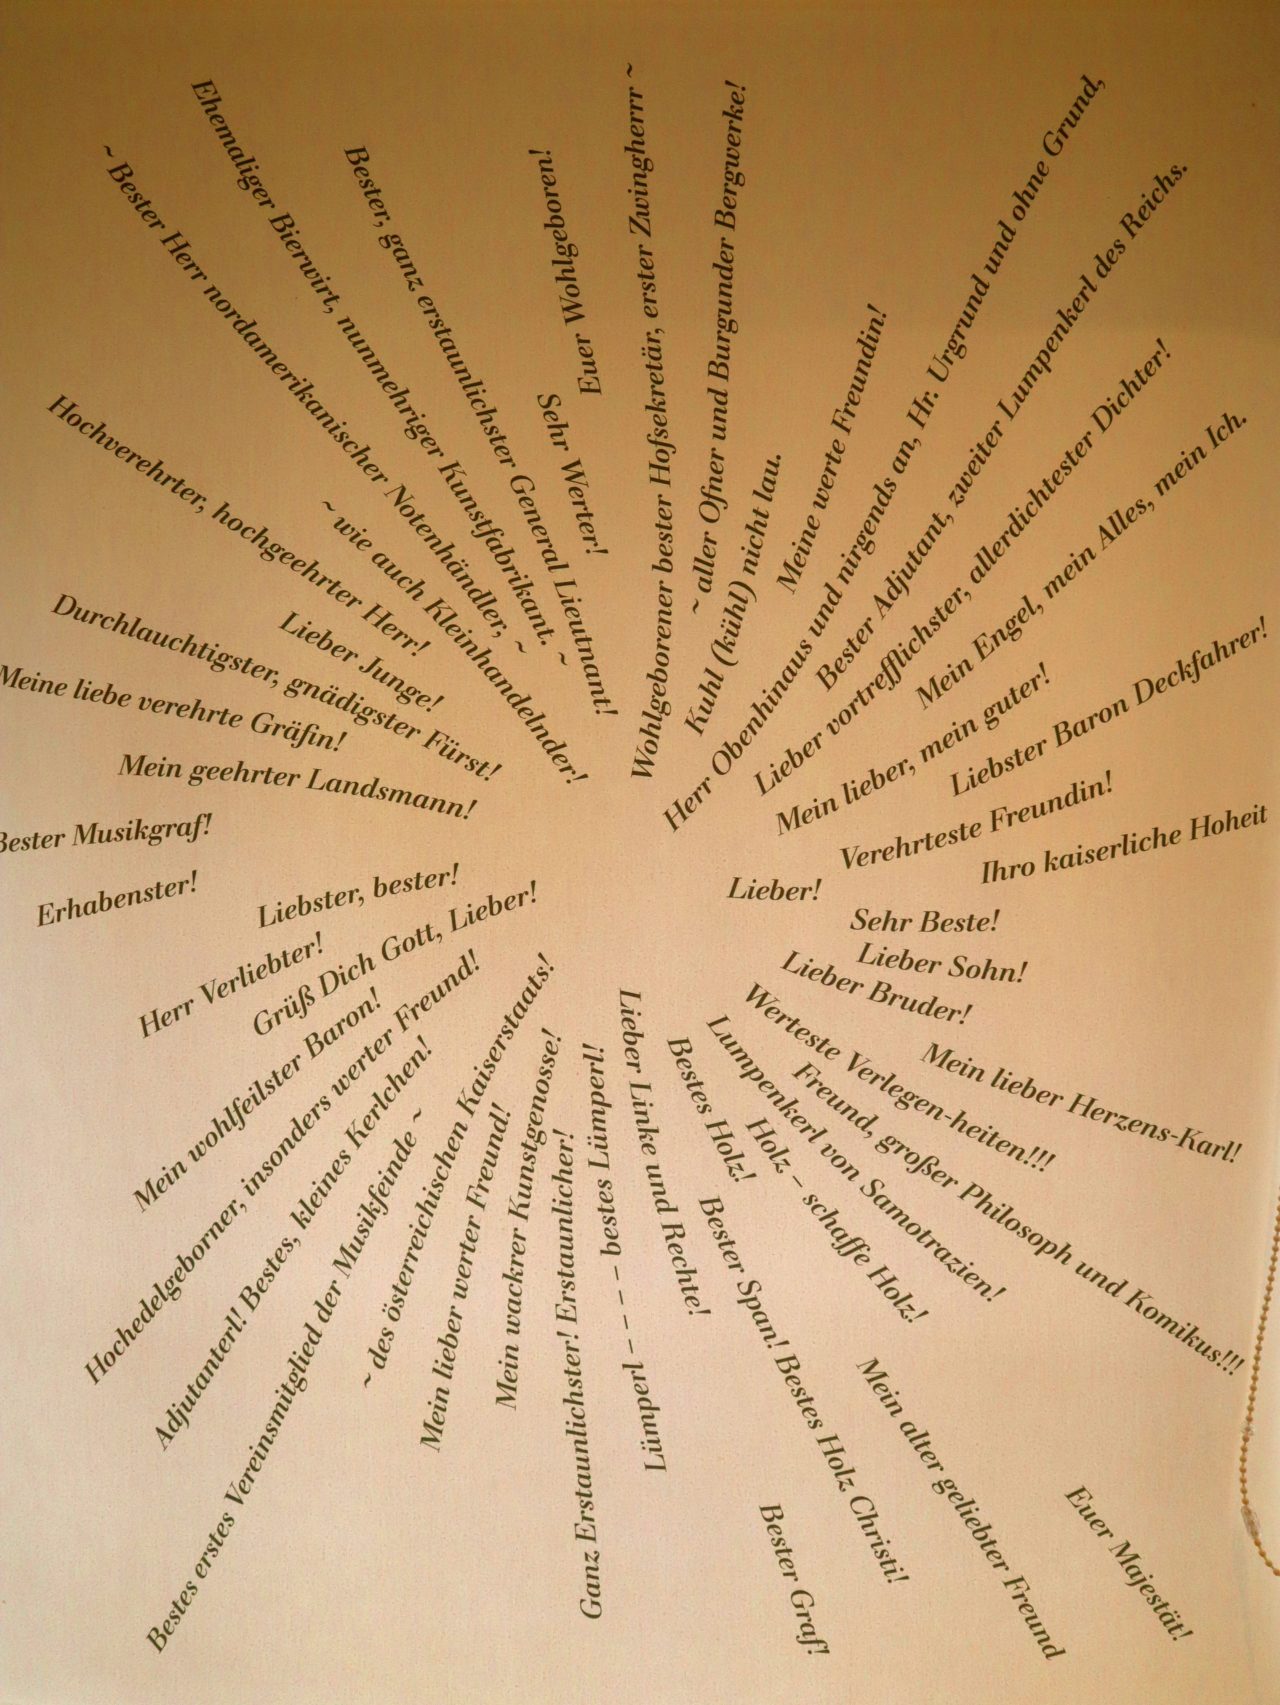 Wohlgeborener bester Hofsekretär, erster Zwingherrr ~
~ aller Ofner und Burgunder Bergwerke!
Kuhl (kühl) nicht lau.
Meine werte Freundin!
Herr Obenhinaus und nirgends an, Hr. Urgrund und ohne Grund,
Bester Adjutant, zweiter Lumpenkerl des Reichs.
Lieber vortrefflichster, allerdichtester Dichter!
Mein Engel, mein Alles, mein Ich.
Mein lieber, mein guter!
Liebster Baron Deckfahrer!
Verehrteste Freundin!
Ihro kaiserliche Hoheit
Lieber!
Sehr Beste!
Lieber Sohn!
Lieber Bruder!
Mein lieber Herzens-Karl!
Werteste Verlegen-heiten!!!
Freund, großer Philosoph und Komikus!!!
Lumpenkerl von Samotrazien!
Holz – schaffe Holz!
Bestes Holz!
Mein alter geliebter Freund
Euer Majestät!
Bester Span! Bestes Holz Christi!
Bester Graf!
Lieber Linke und Rechte!
Lümperl – – – – – bestes Lümperl!
Ganz Erstaunlichster! Erstaunlicher!
Mein wackrer Kunstgenosse!
Mein lieber werter Freund!
~ des österreichischen Kaiserstaats!
Bestes erstes Vereinsmitglied der Musikfeinde ~
Adjutanterl! Bestes, kleines Kerlchen!
Hochedelgeborner, insonders werter Freund!
Mein wohlfeilster Baron!
Grüß Dich Gott, Lieber!
Herr Verliebter!
Liebster, bester!
Erhabenster!
Bester Musikgraf!
Mein geehrter Landsmann!
Meine liebe verehrte Gräfin!
Durchlauchtigster, gnädigster Fürst!
Lieber Junge!
Hochverehrter, hochgeehrter Herr!
~ wie auch Kleinhandelnder!
~ Bester Herr nordamerikanischer Notenhändler, ~
Ehemaliger Bierwirt, nunmehriger Kunstfabrikant. ~
Bester, ganz erstaunlichster General Lieutnant!
Sehr Werter!
Euer Wohlgeboren!